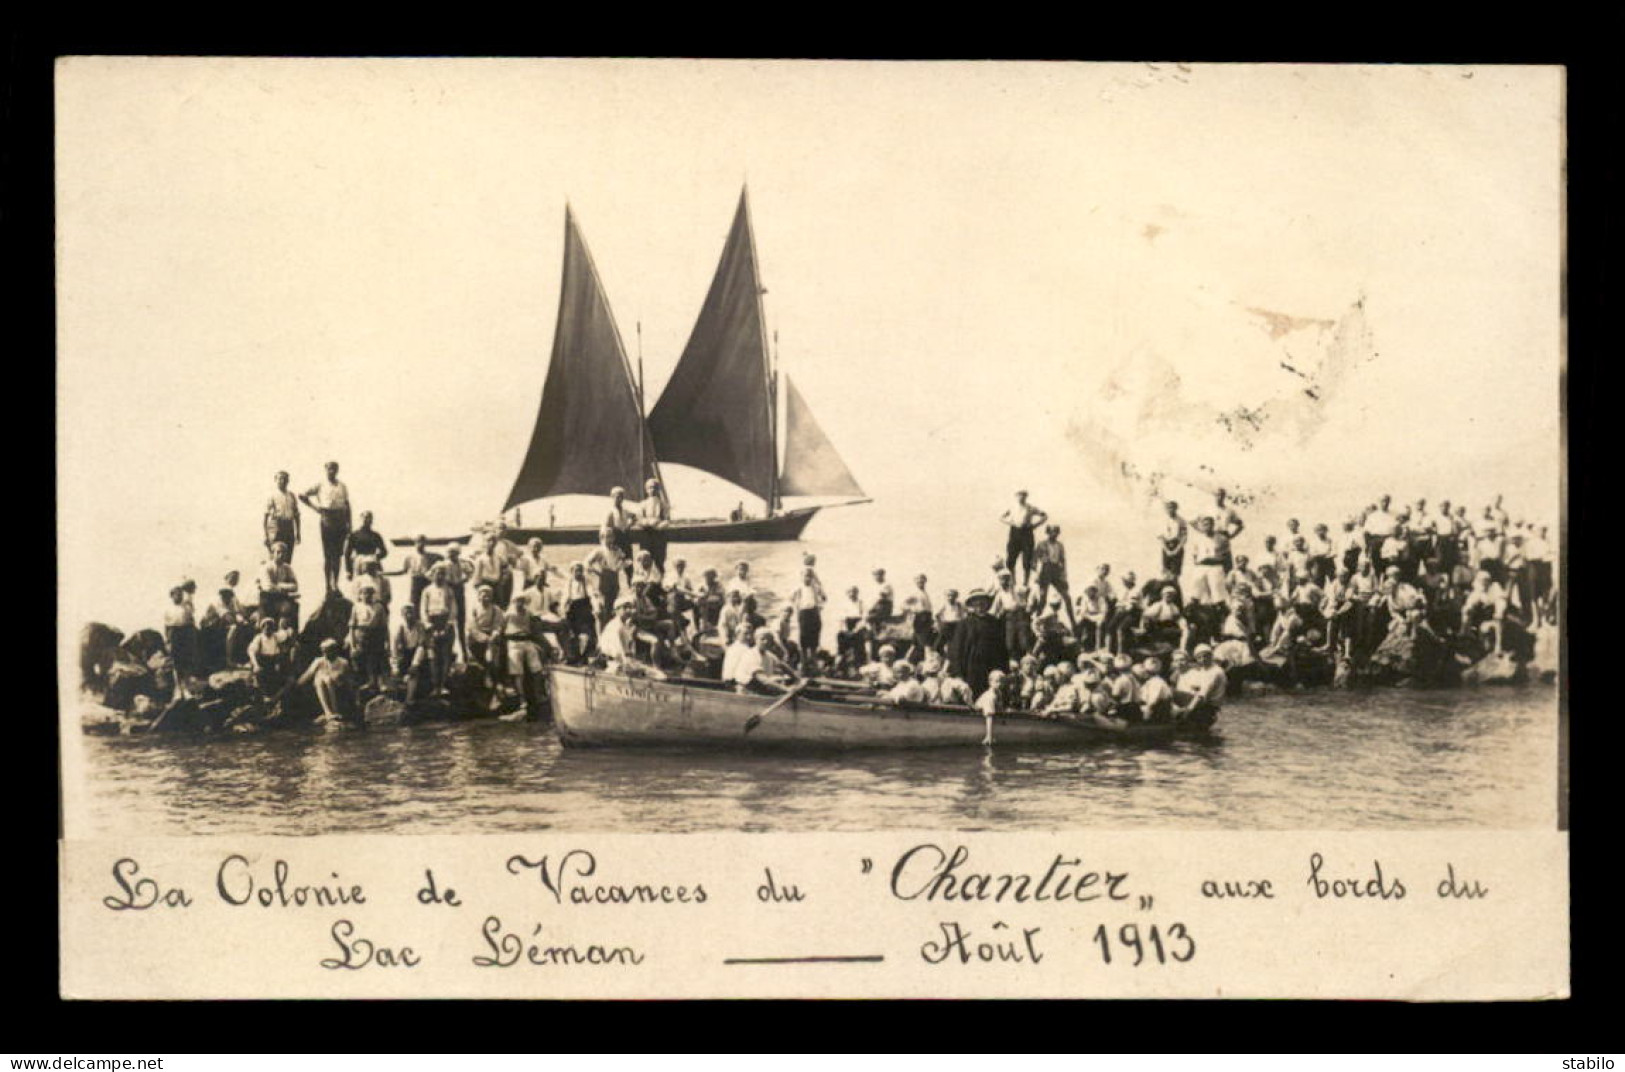 La Colonie de Vacances du "Chantier„ aux bords du
Lac Léman — Août 1913
www.delcampe.net
stabilo